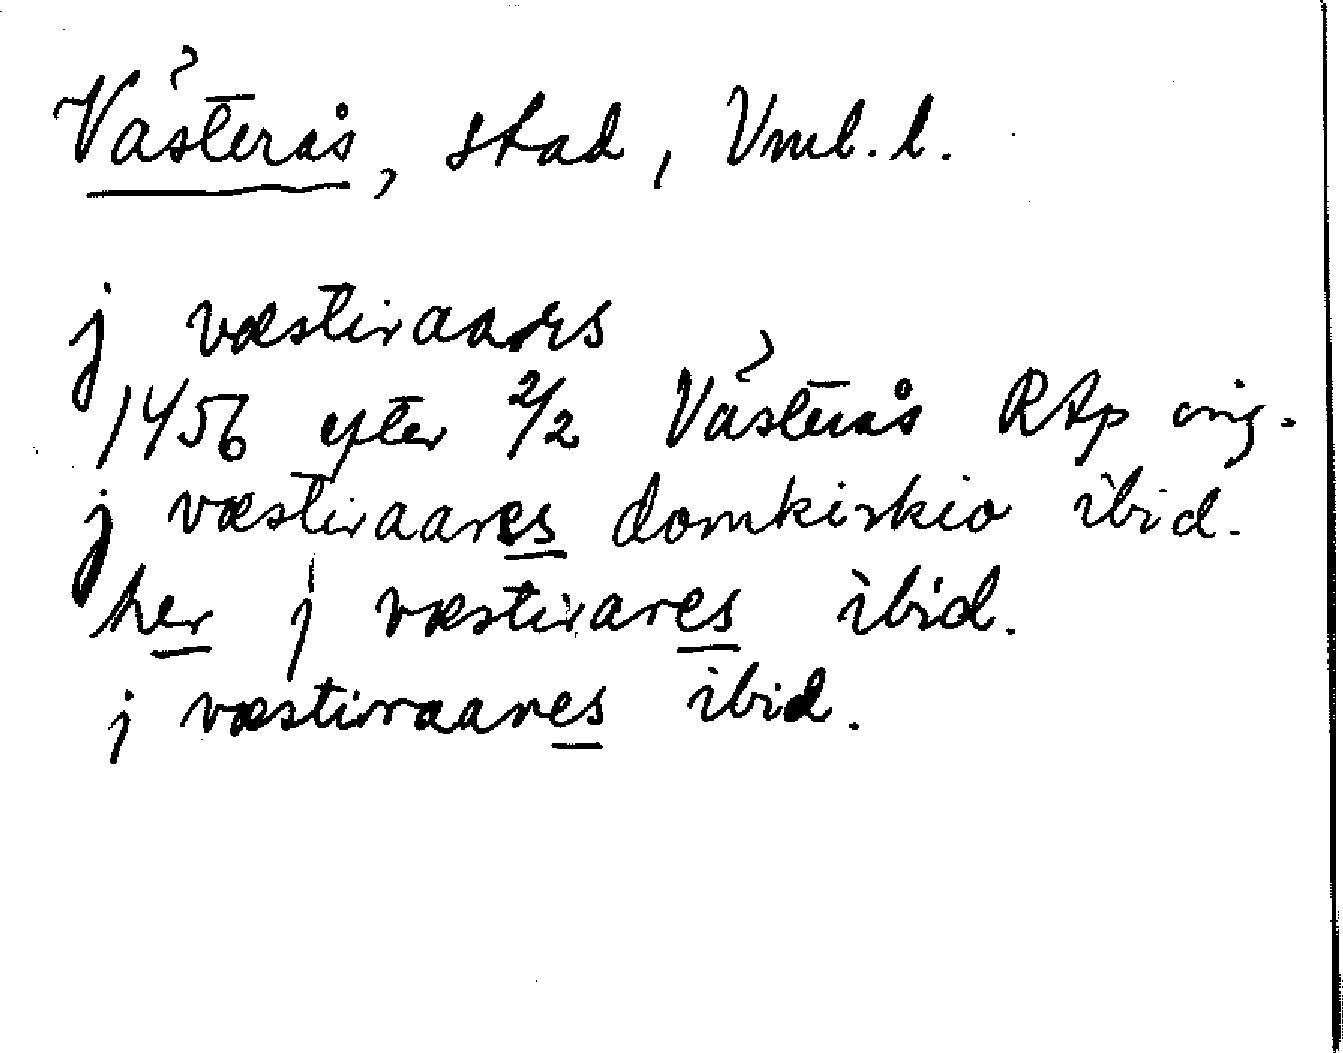 Västerås, stad, Vml. l.
j væstiraars
1456 efter 2/2 Västerås RAp orig.
j væstiraares domkirkio ibid.
her j væstirares ibid.
j væstirraares ibid.